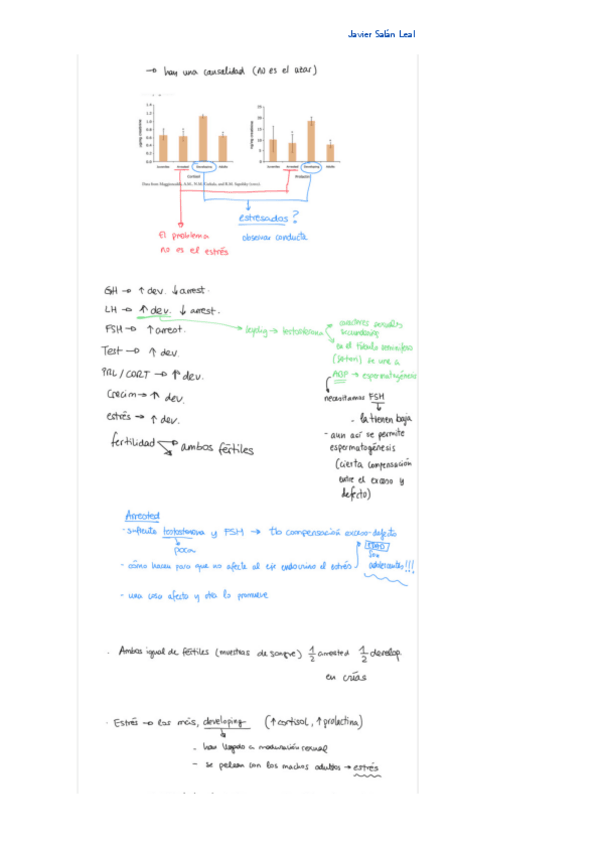 Javier Salán Leal
→ hay una causalidad (no es el azar)
1.4
1.2
1.0
0.8
0.6
0.4
0.2
0.0
Juveniles Arrested Developing Adults
Cortisol
25
20
15
10
5
0
Juveniles Arrested Developing Adults
Prolactin
estresados?
El problema
no es el estrés
observar conducta
GH → ↑ dev. ↓ arrest.
LH → ↑ dev. ↓ arrest.
FSH → ↑ arrest.
Test → ↑ dev.
PRL / CORT → ↑ dev.
Crecim → ↑ dev.
estrés → ↑ dev.
fertilidad → ambos fértiles
leydig → testosterona
caracteres sexuales
secundarios
en el túbulo seminífero
(Sertoli) se une a
ABP → espermatogénesis
necesitamos FSH
- la tienen baja
- aun así se permite
espermatogénesis
(cierta compensación
entre el exceso y
defecto)
Arrested
- suficiente testosterona y FSH → tío compensación exceso-defecto
poca
- cómo hacen para que no afecte al eje endocrino el estrés
adolescentes!!!
- una cosa afecta y otra lo promueve
· Ambos igual de fértiles (muestras de sangre) 1/2 arrested 1/2 develop
en crías
· Estrés → los más, developing (↑ cortisol, ↑ prolactina)
- han llegado a maduración sexual
- se pelean con los machos adultos → estrés